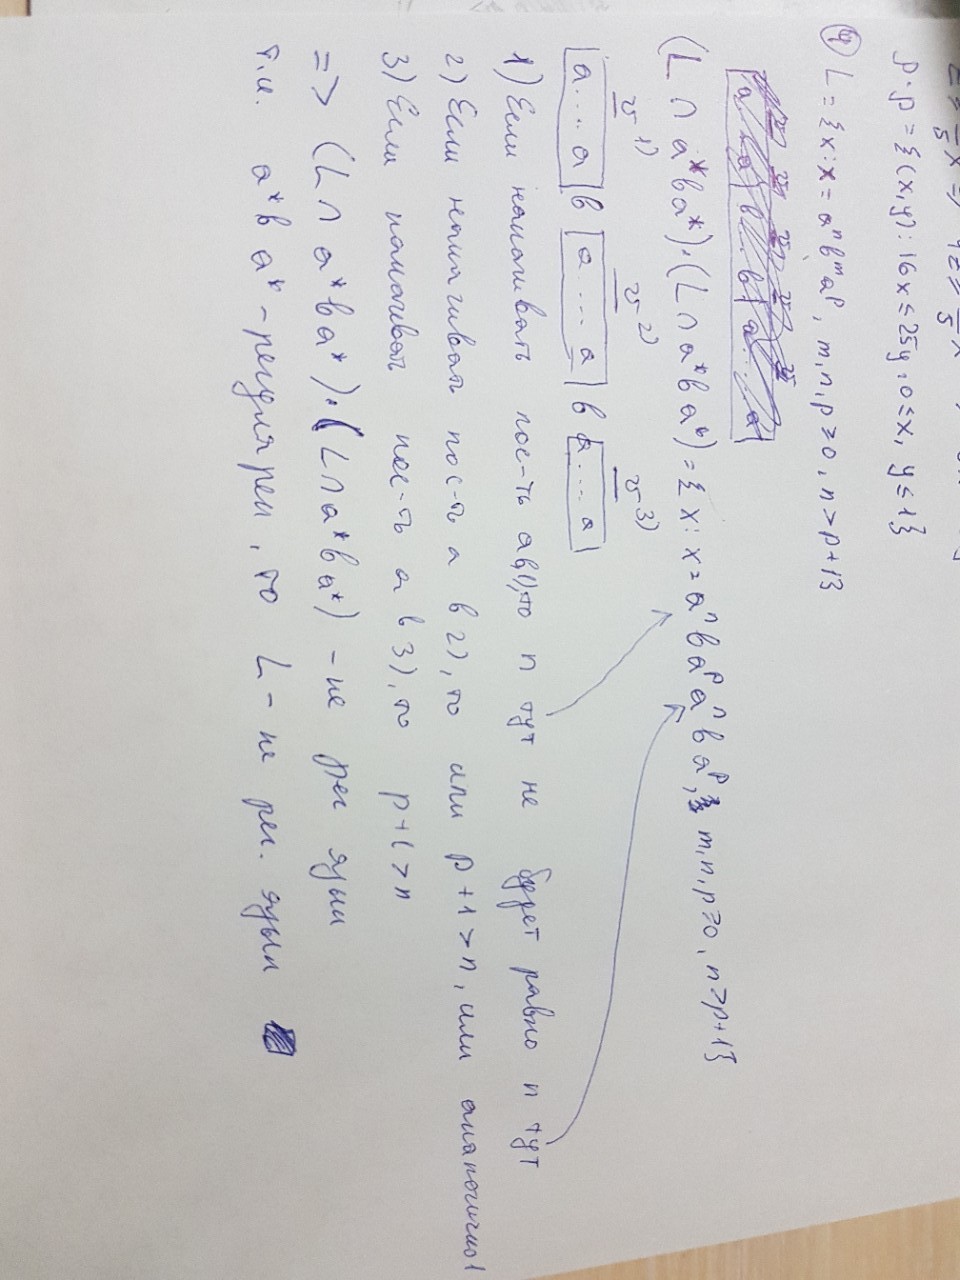 ρ·ρ = {(x,y) : 16x ≤ 25y, 0 ≤ x, y ≤ 1}
④ L = {x : x = aⁿbᵐaᵖ, m,n,p ≥ 0, n > p+1}
(L ∩ a*ba*)·(L ∩ a*ba*) = {x : x = aⁿbaᵖaⁿbaᵖ, m,n,p ≥ 0, n > p+1}
v 1) v 2) v 3)
a...a b a....a b a....a
1) Если накачивать пос-ть а в 1), то n тут не будет равно n тут
2) Если накачивать пос-ть а в 2), то или p+1 > n, или аналогично 1
3) Если накачивать пос-ть а в 3), то p+1 > n
=> (L ∩ a*ba*)·(L ∩ a*ba*) - не рег язык
т.к. a*ba* - регулярен, то L - не рег. язык